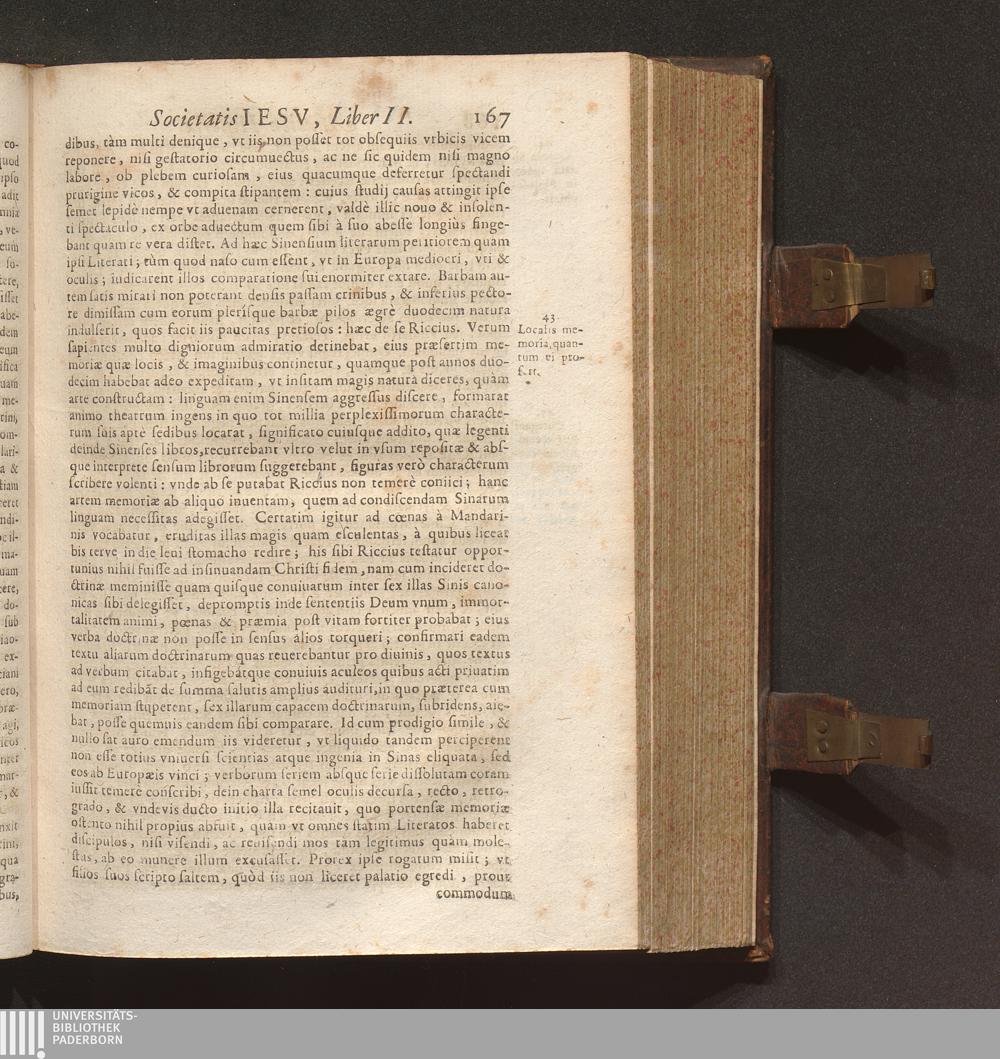 Societatis IESV, Liber II. 167
dibus, tàm multi denique, vt iis non posset tot obsequiis vrbicis vicem
reponere, nisi gestatorio circumuectus, ac ne sic quidem nisi magno
labore, ob plebem curiosam, eius quacumque deferretur spectandi
prurigine vicos, & compita stipantem: cuius studij causas attingit ipse
semet lepidè nempe vt aduenam cernerent, valdè illic nouo & insolen-
ti spectaculo, ex orbe aduectum quem sibi à suo abesse longiùs finge-
bant quam re vera distet. Ad hæc Sinensium literarum peritiorem quam
ipsi Literati; tùm quod naso cum essent, vt in Europa mediocri, vti &
oculis; iudicarent illos comparatione sui enormiter extare. Barbam au-
tem satis mirari non poterant densis passam crinibus, & inferius pecto-
re dimissam cum eorum plerisque barbæ pilos ægrè duodecim natura
indulserit, quos facit iis paucitas pretiosos: hæc de se Riccius. Verum
sapientes multo digniorum admiratio detinebat, eius præsertim me-
moriæ quæ locis, & imaginibus continetur, quamque post annos duo-
decim habebat adeo expeditam, vt insitam magis naturâ diceres, quàm
arte constructam: linguam enim Sinensem aggressus discere, formarat
animo theatrum ingens in quo tot millia perplexissimorum characte-
rum suis aptè sedibus locarat, significato cuiusque addito, quæ legenti
deinde Sinenses libros, recurrebant vltro velut in vsum repositæ & abs-
que interprete sensum librorum suggerebant, figuras verò characterum
scribere volenti: vnde ab se putabat Riccius non temerè coniici; hanc
artem memoriæ ab aliquo inuentam, quem ad condiscendam Sinarum
linguam necessitas adegisset. Certatim igitur ad cœnas à Mandari-
nis vocabatur, eruditas illas magis quam esculentas, à quibus liceat
bis terve in die leui stomacho redire; his sibi Riccius testatur oppor-
tunius nihil fuisse ad insinuandam Christi fidem, nam cum incideret do-
ctrinæ meminisse quam quisque conuiuarum inter sex illas Sinis cano-
nicas sibi delegisset, depromptis inde sententiis Deum vnum, immor-
talitatem animi, pœnas & præmia post vitam fortiter probabat; eius
verba doctrinæ non posse in sensus alios torqueri; confirmari eadem
textu aliarum doctrinarum quas reuerebantur pro diuinis, quos textus
ad verbum citabat, infigebátque conuiuis aculeos quibus acti priuatim
ad eum redibāt de summa salutis amplius audituri, in quo præterea cum
memoriam stuperent, sex illarum capacem doctrinarum, subridens, aie-
bat, posse quemuis eandem sibi comparare. Id cum prodigio simile, &
nullo sat auro emendum iis videretur, vt liquido tandem perciperent
non esse totius vniuersi scientias atque ingenia in Sinas eliquata, sed
eos ab Europæis vinci; verborum seriem absque serie dissolutam coram
iussit temerè conscribi, dein charta semel oculis decursa, recto, retro-
grado, & vndevis ducto initio illa recitauit, quo portensæ memoriæ
ostento nihil propius abfuit, quam vt omnes statim Literatos haberet
discipulos, nisi visendi, ac reuisendi mos tam legitimus quam mole-
stus, ab eo munere illum excusasset. Prorex ipse rogatum misit; vt
filios suos scripto saltem, quòd iis non liceret palatio egredi, prout
commodum
43.
Localis me-
moria, quan-
tum ei pro-
ferr.
co-
quod
ipso
adit
mnia
, ve-
eum
su-
tere,
isset
abe-
dem
eum
ifica
uam
me-
tini,
om-
lati-
a &
tiam
ceret
ndi-
ma-
uam
cere,
do-
sub
iao-
ex-
ciani
ero,
præ-
agi,
icos
nter
nar-
c, &
nxit
cint,
qua
gra-
bus,
UNIVERSITÄTS-
BIBLIOTHEK
PADERBORN